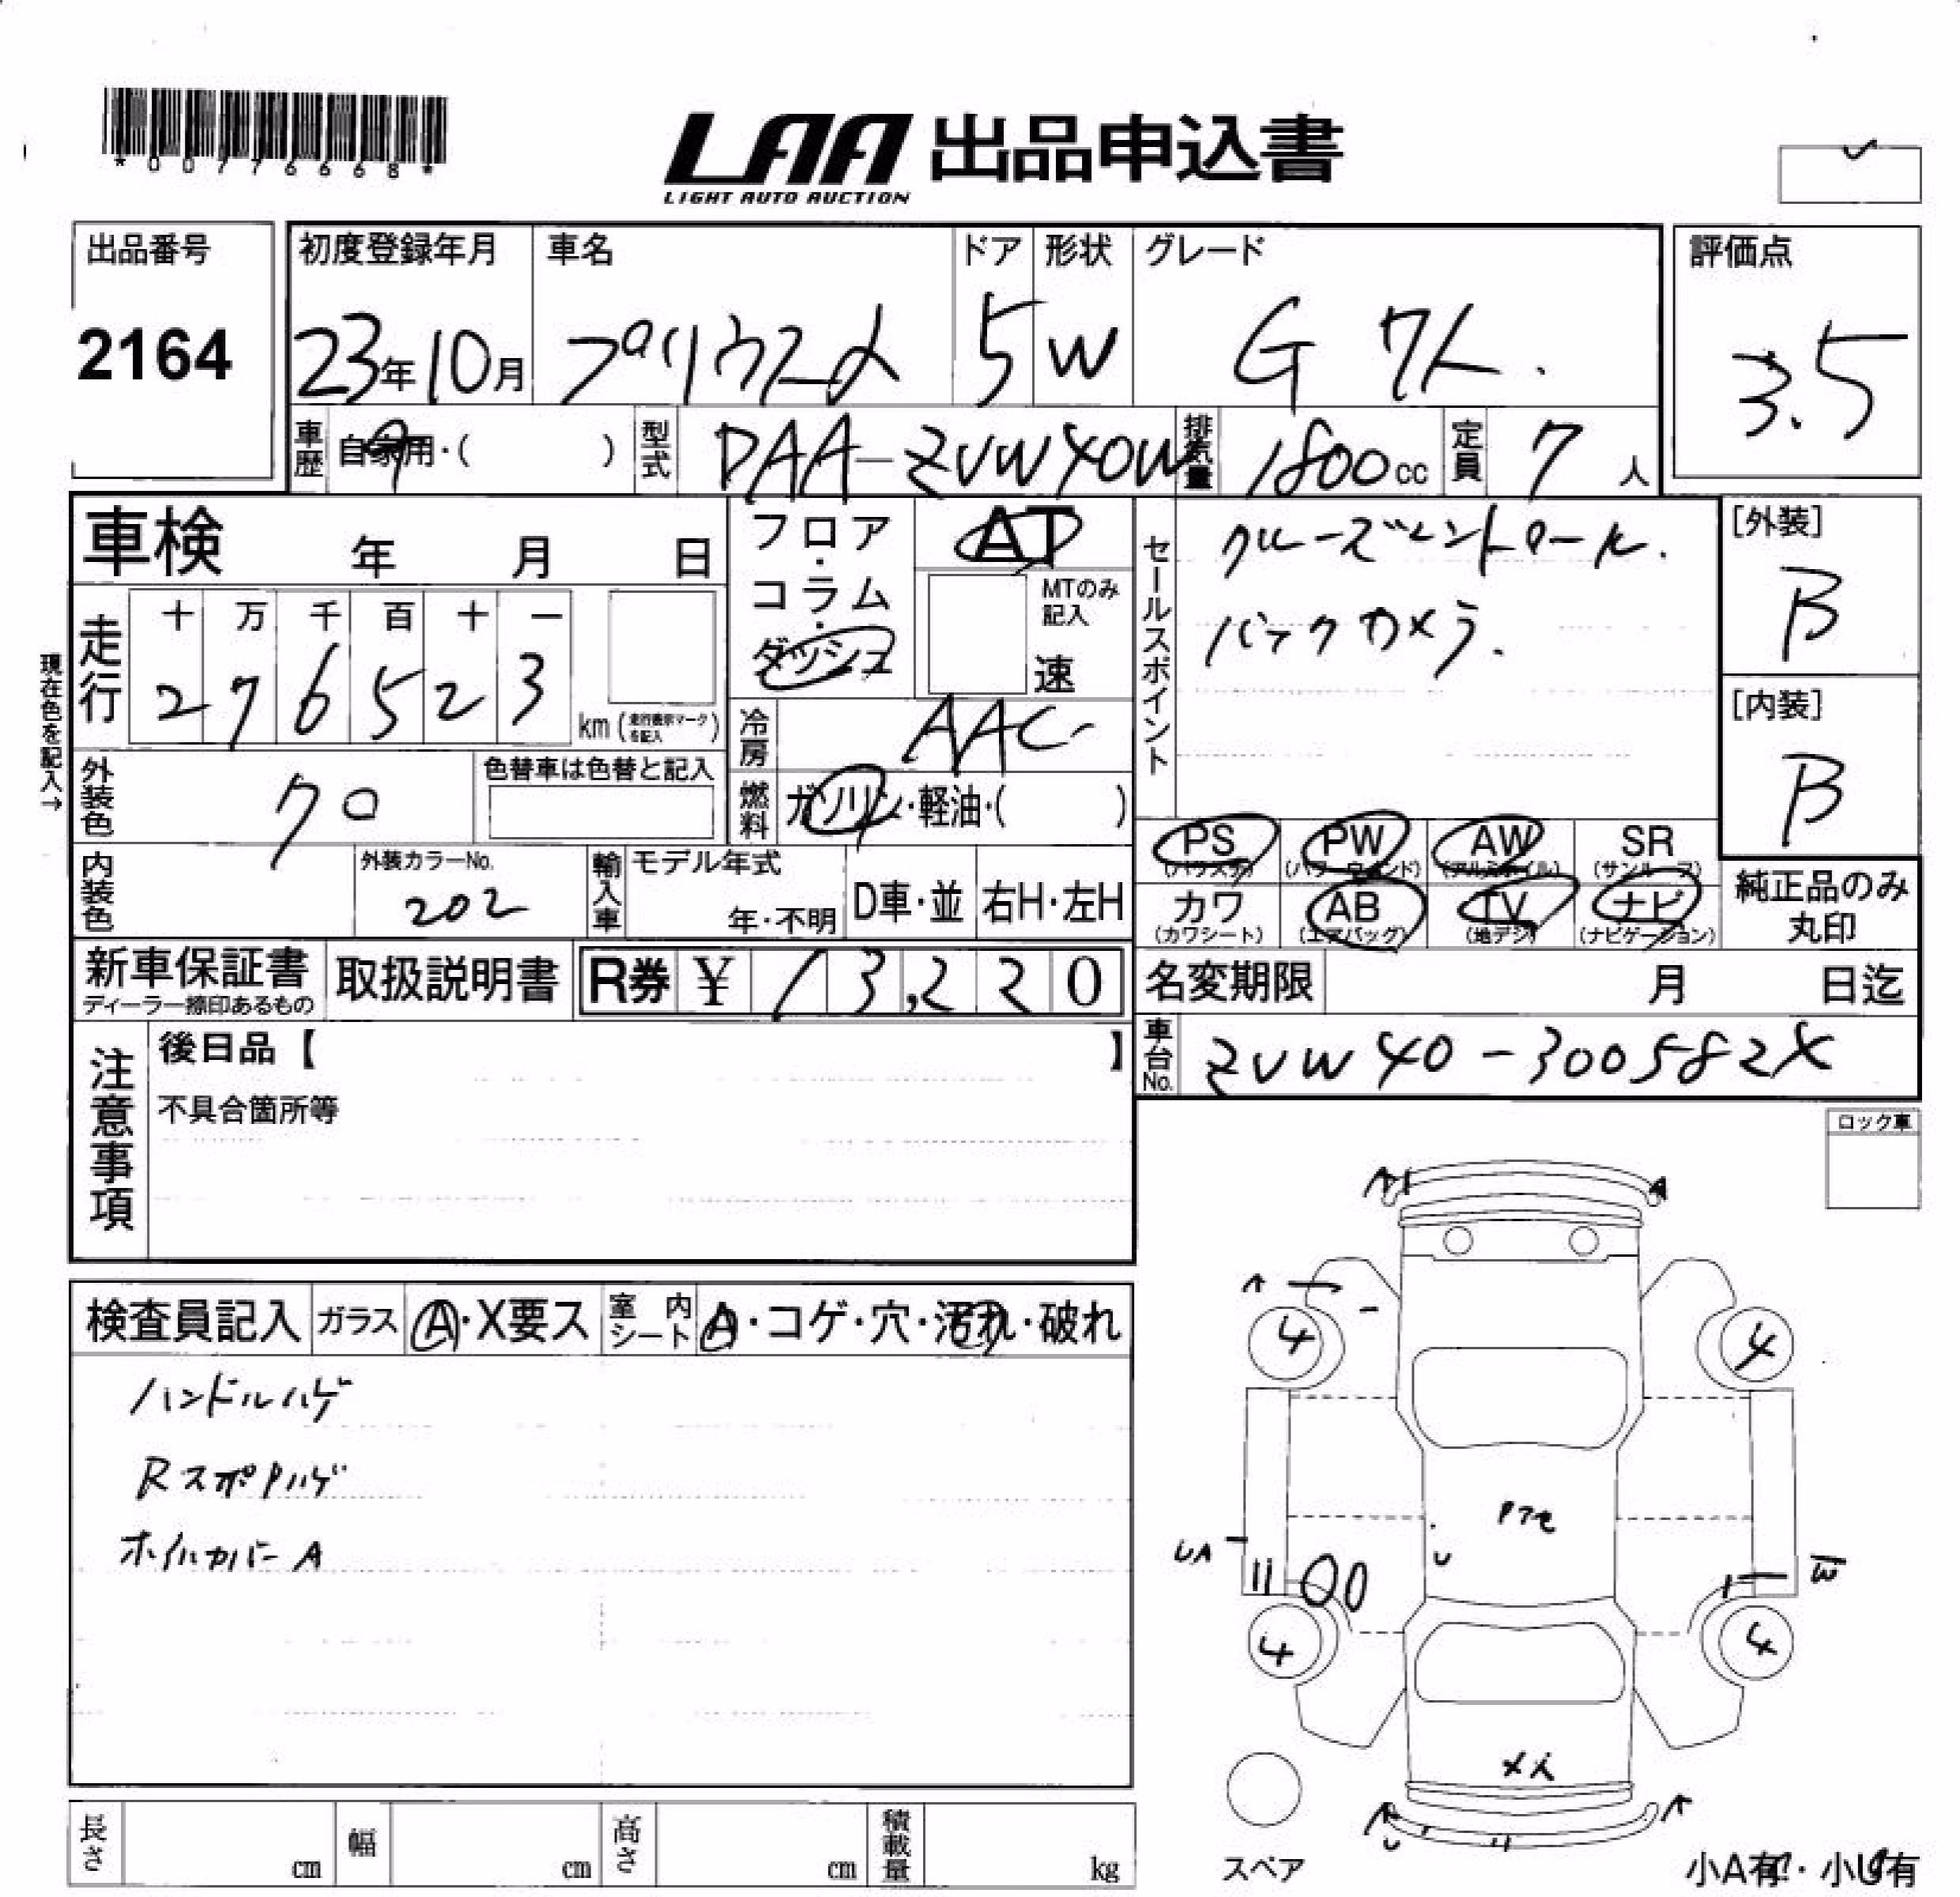 *00776668*
LAA 出品申込書
LIGHT AUTO AUCTION
出品番号
2164
初度登録年月
23年10月
車名
プリウスα
ドア
5
形状
W
グレード
G ワゴ.
評価点
3.5
車歴
自家用・( )
型式
DAA-ZVW40W
排気量
1800cc
定員
7人
車検 年 月 日
フロア・コラム・ダッシュ
AT
MTのみ記入
速
セールスポイント
クルーズコントロール.
バックカメラ.
[外装]
B
[内装]
B
現在色を記入→
走行
十 万 千 百 十 一
2 7 6 5 2 3
km(走行表示マークを記入)
冷房
AAC
外装色
クロ
色替車は色替と記入
燃料
ガソリン・軽油・( )
PS
(パワステ)
PW
(パワーウィンド)
AW
(アルミホイル)
SR
(サンルーフ)
カワ
(カワシート)
AB
(エアバッグ)
TV
(地デジ)
ナビ
(ナビゲーション)
純正品のみ
丸印
内装色
外装カラーNo.
202
輸入車
モデル年式
年・不明
D車・並
右H・左H
新車保証書
ディーラー捺印あるもの
取扱説明書
R券 ¥ 13,220
名変期限 月 日迄
車台No.
ZVW40-300582X
注意事項
後日品【 】
不具合箇所等
ロック車
検査員記入
ガラス
A・X要ス
室内シート
A・コゲ・穴・汚れ・破れ
ハンドルハゲ
RスポPハゲ
ホイルカバーA
A
A
4
4
UA
U
W
4
4
A
U
A
スペア
小A有・小U有
長さ cm
幅 cm
高さ cm
積載量 kg